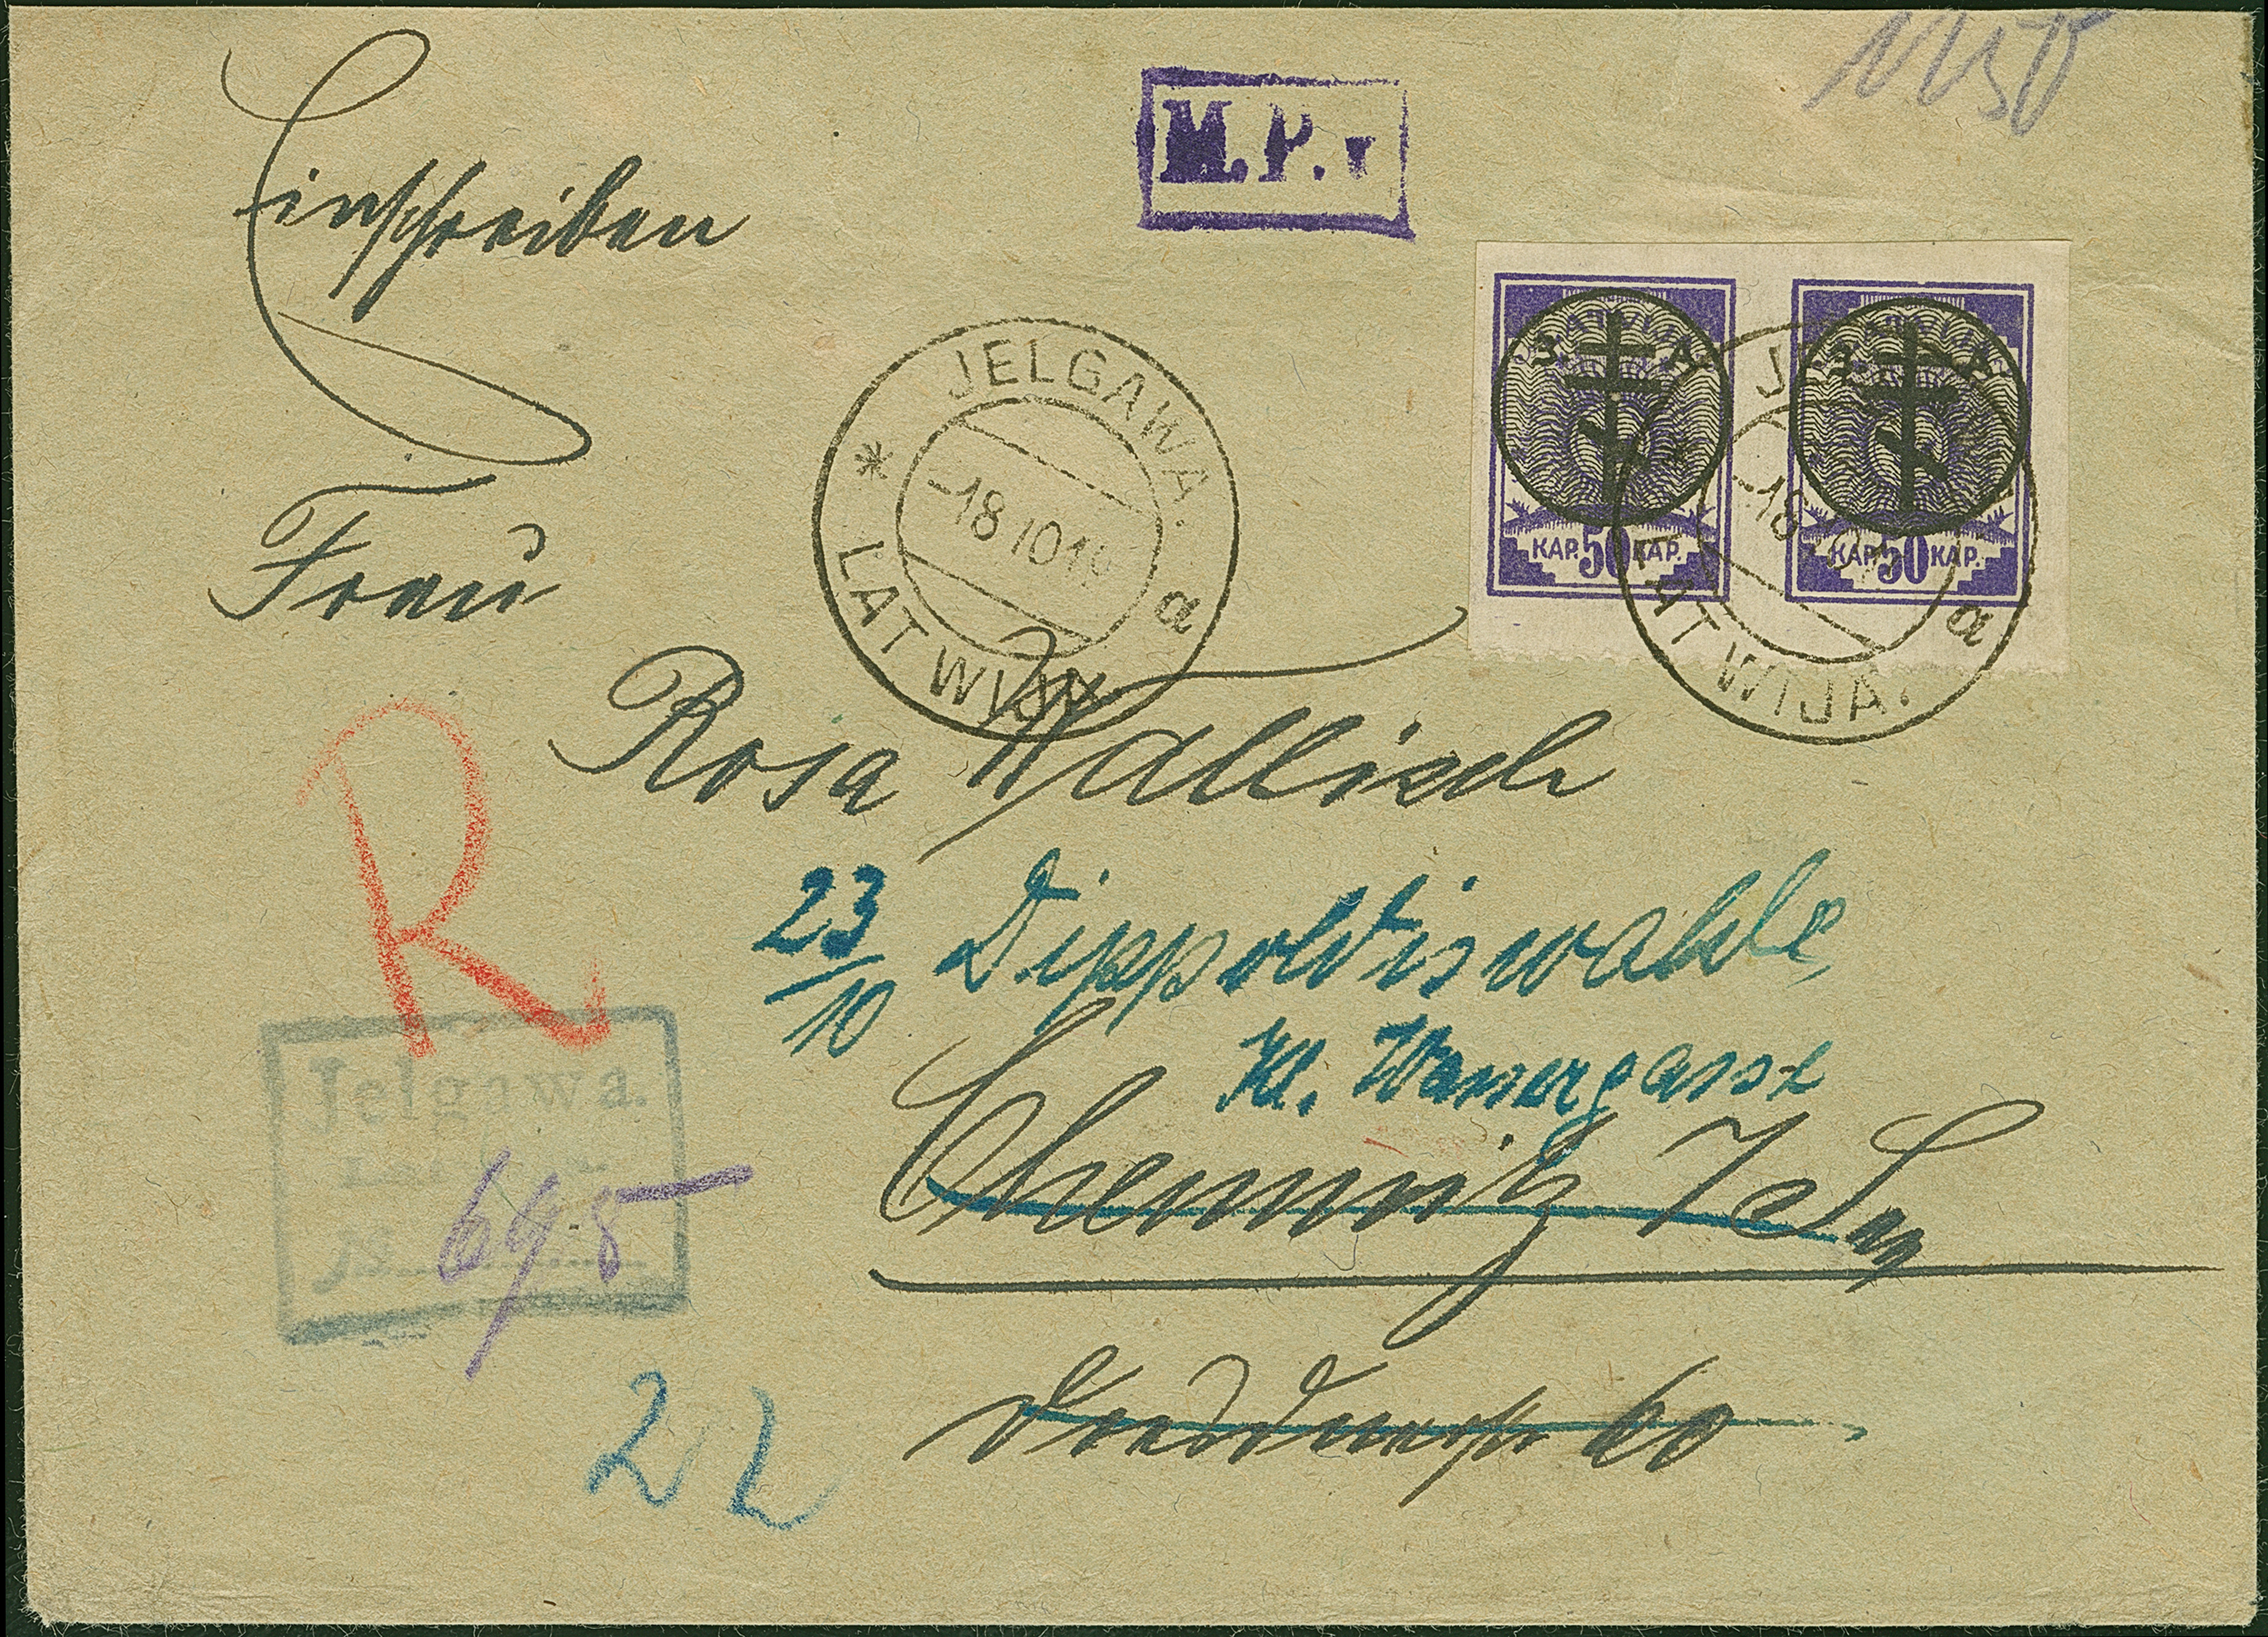 Einschreiben
M.P.
JELGAWA.
-18 10 19
a
LATWIJA.
З. А
KAP. 50 KAP.
З. А
KAP. 50 KAP.
LATWIJA.
a
Frau
Rosa Wallisch
R
23/10 Dippoldiswalde
Kl. Wassergasse
Chemnitz i Sa
60
Jelgawa.
№ 695
22